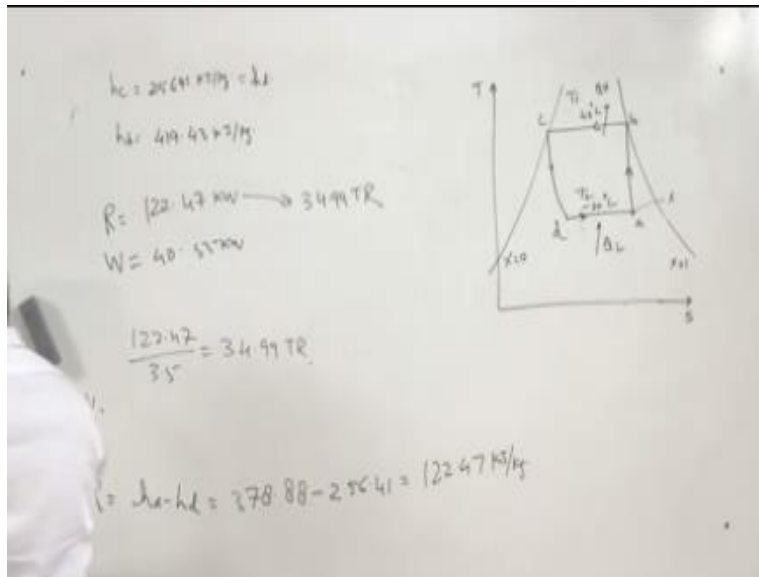 hc = 256.41 kJ/kg = hd
hb = 419.43 kJ/kg
R = 122.47 kW → 34.99 TR
W = 40.55 kW
122.47
3.5
= 34.99 TR
= ha-hd = 378.88 - 256.41 = 122.47 kJ/kg
T
c
b
d
a
QL
x=0
x=1
s